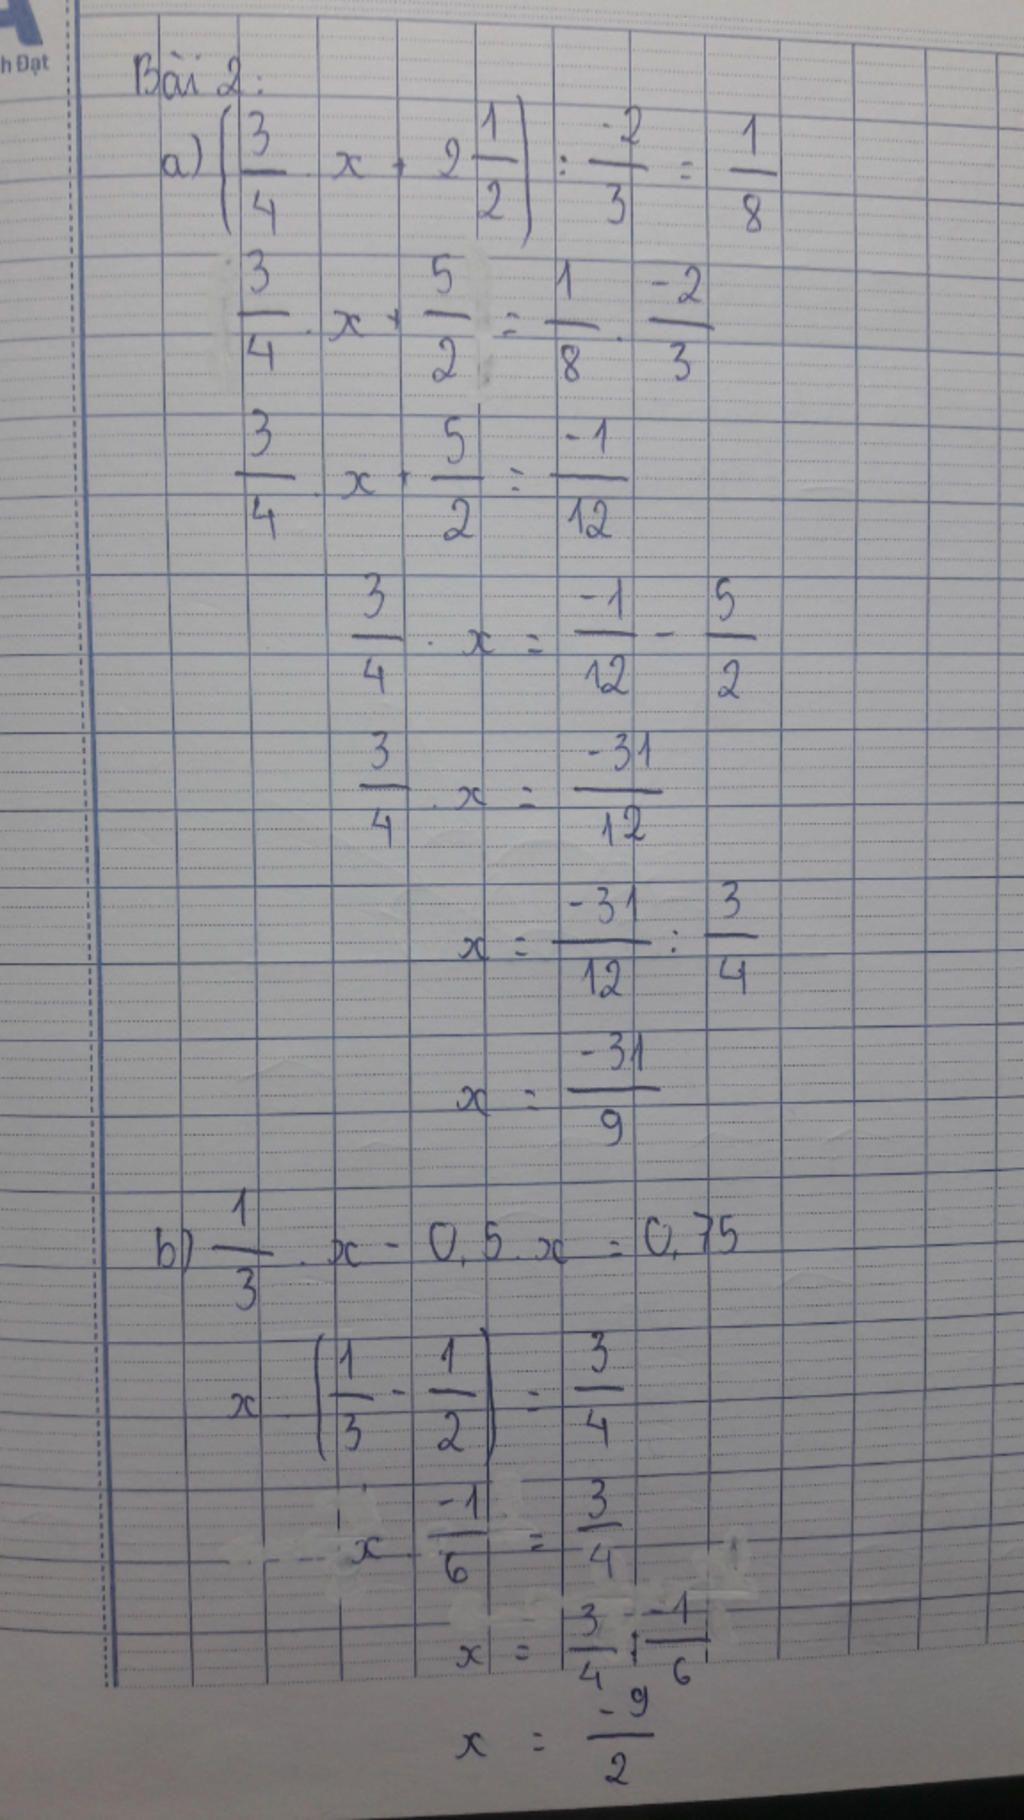 h Đạt
Bài 2:
a) (3/4 . x + 2 1/2) : -2/3 = 1/8
3/4 . x + 5/2 = 1/8 . -2/3
3/4 . x + 5/2 = -1/12
3/4 . x = -1/12 - 5/2
3/4 . x = -31/12
x = -31/12 : 3/4
x = -31/9
b) 1/3 . x - 0,5 . x = 0,75
x . (1/3 - 1/2) = 3/4
x . -1/6 = 3/4
x = 3/4 : -1/6
x = -9/2